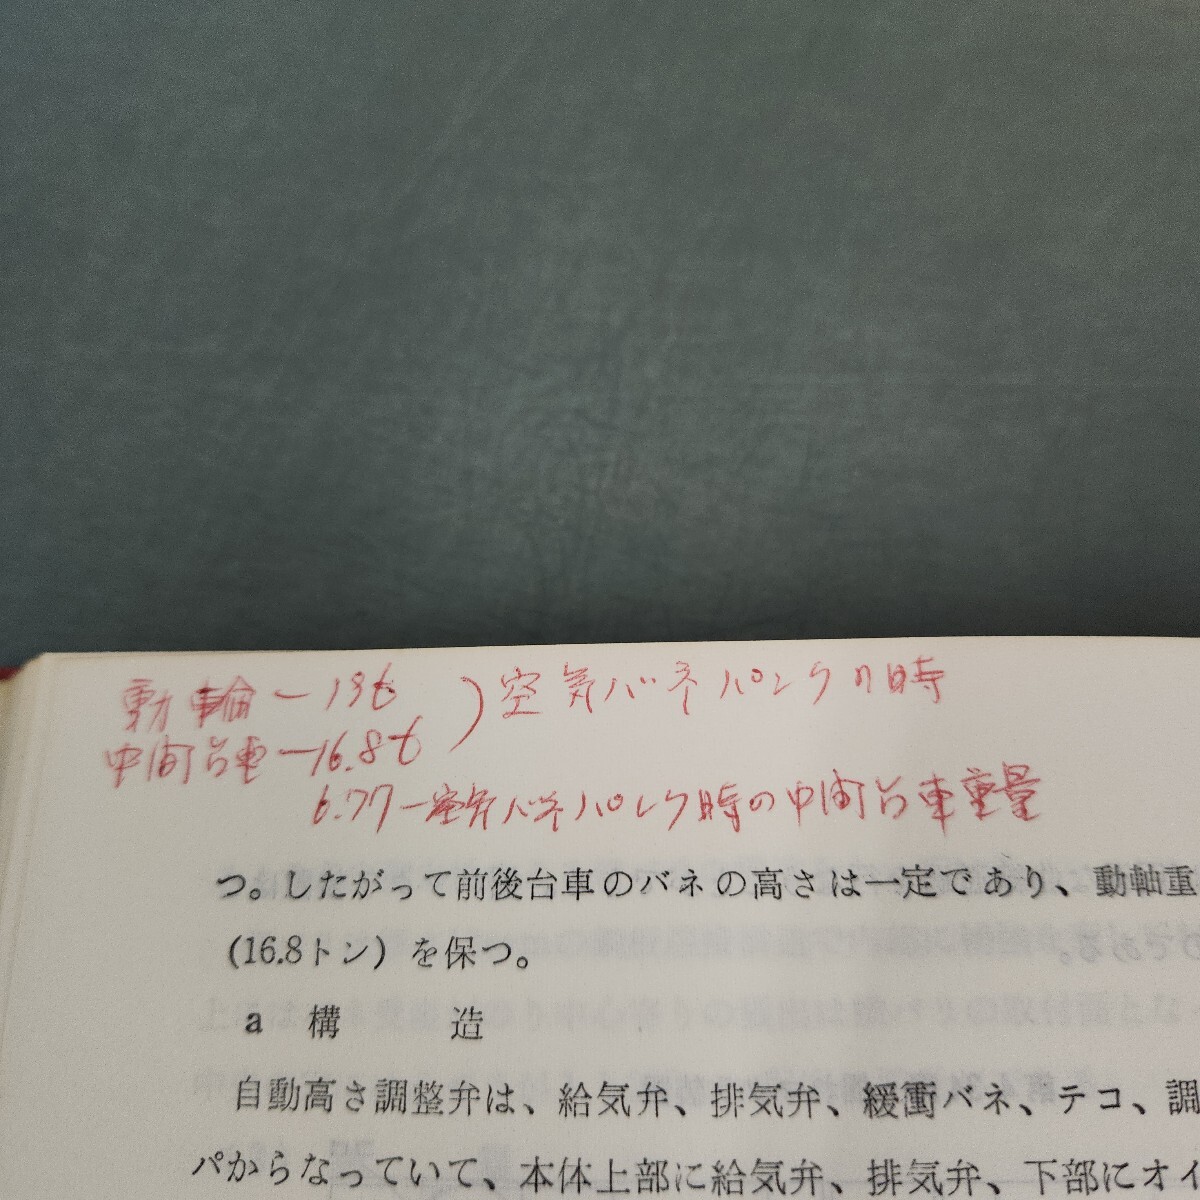 動輪ー18t ) 空気バネパンクの時
中間台車ー16.8t
6.77ー空気バネパンク時の中間台車重量
つ。したがって前後台車のバネの高さは一定であり、動軸重
(16.8トン)を保つ。
a 構 造
自動高さ調整弁は、給気弁、排気弁、緩衝バネ、テコ、調
パからなっていて、本体上部に給気弁、排気弁、下部にオイ